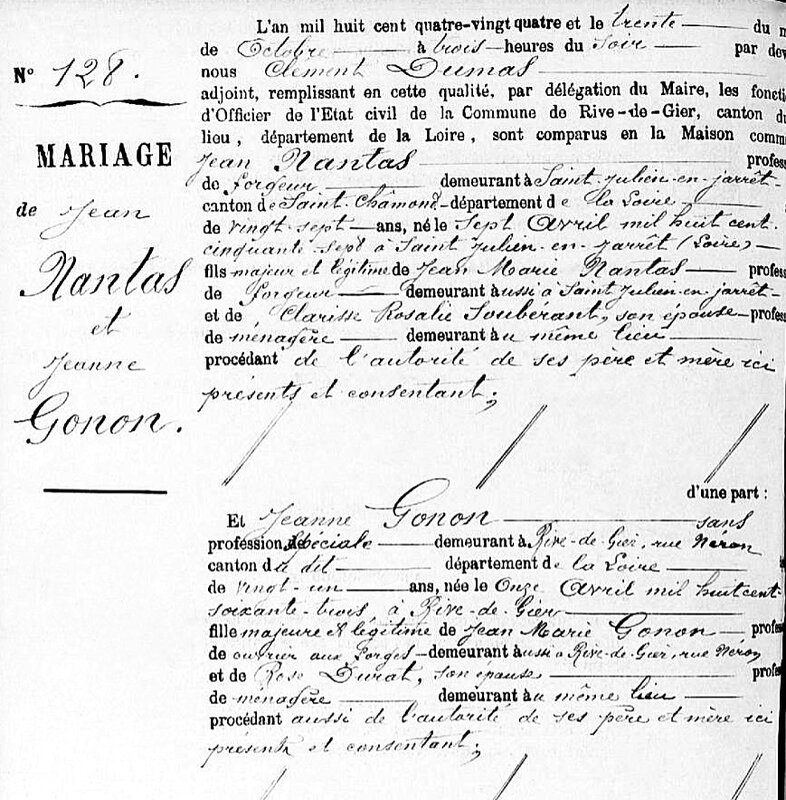 N° 128.
MARIAGE
de Jean
Nantas
et
Jeanne
Gonon.
L'an mil huit cent quatre-vingt quatre et le trente du m
de Octobre à trois heures du soir par dev
nous Clément Dumas
adjoint, remplissant en cette qualité, par délégation du Maire, les foncti
d'Officier de l'Etat civil de la Commune de Rive-de-Gier, canton du
lieu, département de la Loire, sont comparus en la Maison comm
Jean Nantas profess
de forgeur demeurant à Saint-Julien-en-jarrêt
canton de Saint-Chamond département de la Loire,
de vingt-sept ans, né le Sept Avril mil huit cent
cinquante-sept à Saint Julien-en-jarrêt (Loire)
fils majeur et légitime de Jean Marie Nantas profess
de forgeur demeurant aussi à Saint Julien-en-jarrêt
et de Clarisse Rosalie Soubérant, son épouse profess
de ménagère demeurant au même lieu
procédant de l'autorité de ses père et mère ici
présents et consentant;
d'une part :
Et Jeanne Gonon sans
profession spéciale demeurant à Rive-de-Gier, rue Néron
canton du dit département de la Loire
de vingt-un ans, née le Onze Avril mil huit cent
soixante-trois à Rive-de-Gier
fille majeure et légitime de Jean Marie Gonon profes
de ouvrier aux forges demeurant aussi à Rive-de-Gier, rue Néron
et de Rose Durat, son épouse prof
de ménagère demeurant au même lieu
procédant aussi de l'autorité de ses père et mère ici
présents et consentant;